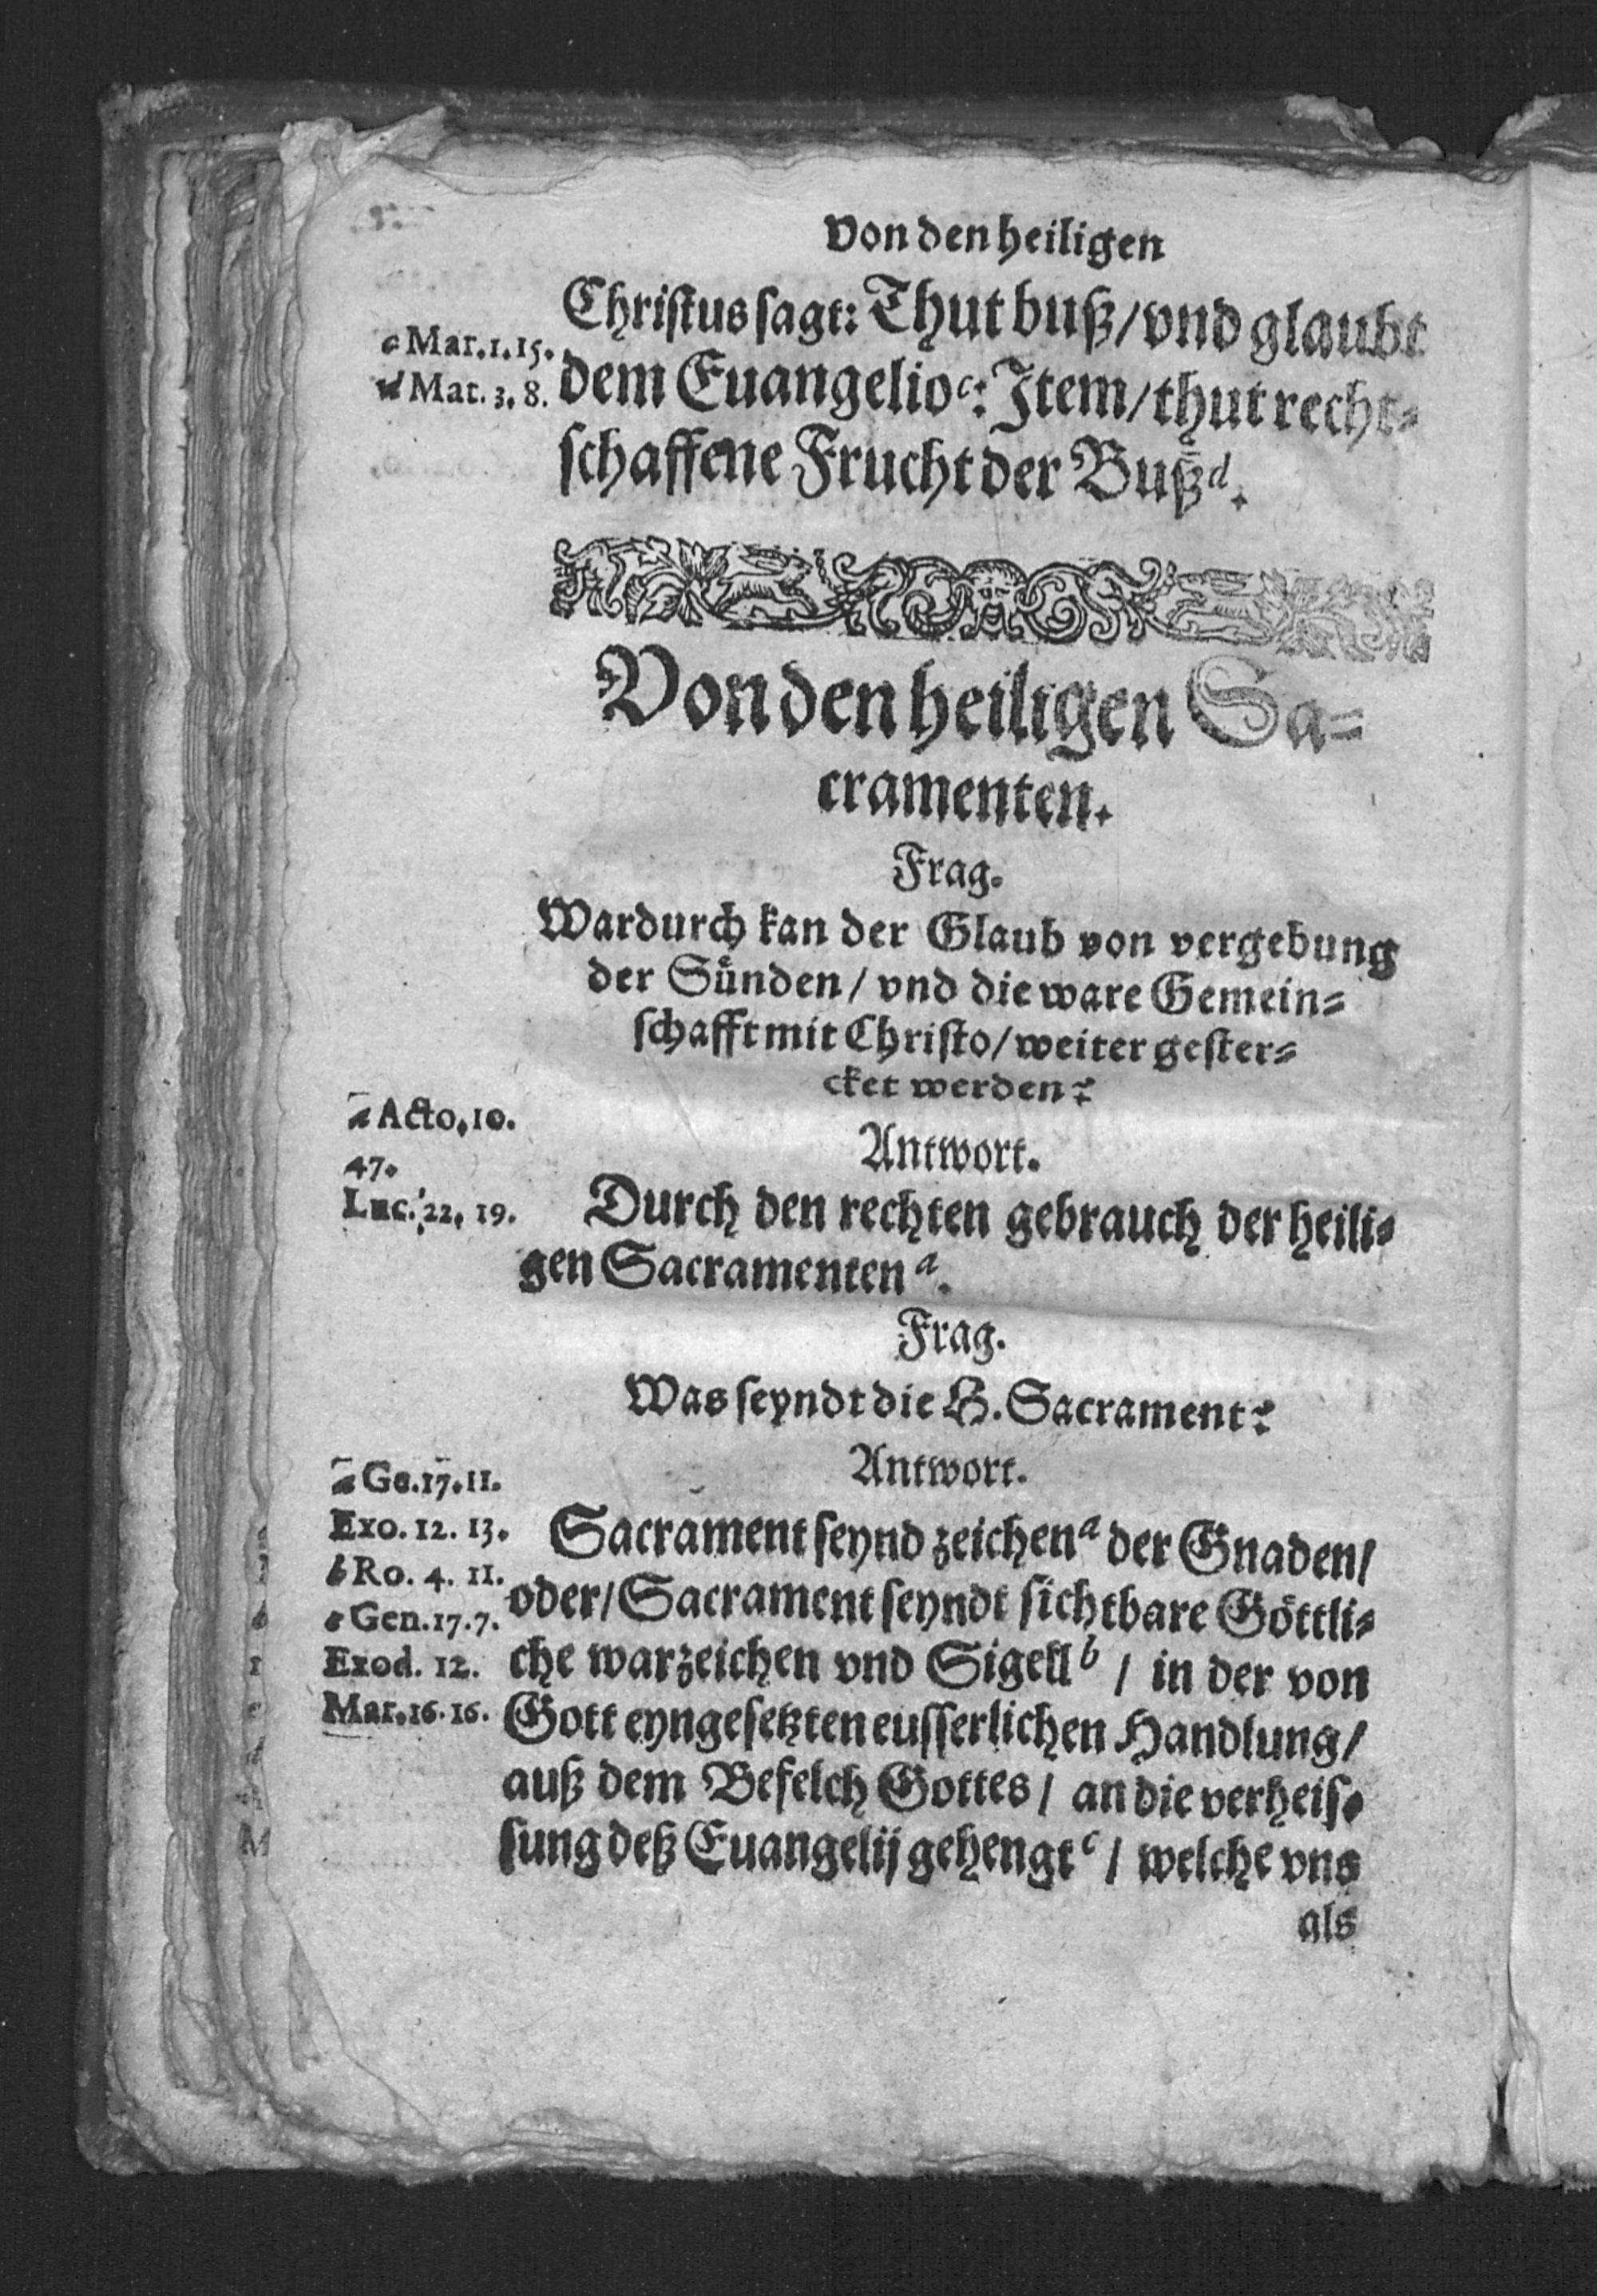 Von den heiligen
Christus sagt: Thut buß/ vnd glaubt
c Mar. 1. 15.
dem Euangelio c: Item/ thut recht-
d Mat. 3. 8.
schaffene Frucht der Buß d.
Von den heiligen Sa-
cramenten.
Frag.
Wardurch kan der Glaub von vergebung
der Sünden/ vnd die ware Gemein-
schafft mit Christo/ weiter gester-
cket werden?
a Acto. 10.
47.
Luc. 22. 19.
Antwort.
Durch den rechten gebrauch der heili-
gen Sacramenten a.
Frag.
Was seyndt die H. Sacrament?
Antwort.
a Ge. 17. 11.
Exo. 12. 13.
b Ro. 4. 11.
c Gen. 17. 7.
Exod. 12.
Mar. 16. 16.
Sacrament seynd zeichen a der Gnaden/
oder/ Sacrament seyndt sichtbare Göttli-
che warzeichen vnd Sigell b / in der von
Gott eyngesetzten eusserlichen Handlung/
auß dem Befelch Gottes / an die verheis-
sung deß Euangelij gehengt c / welche vns
als